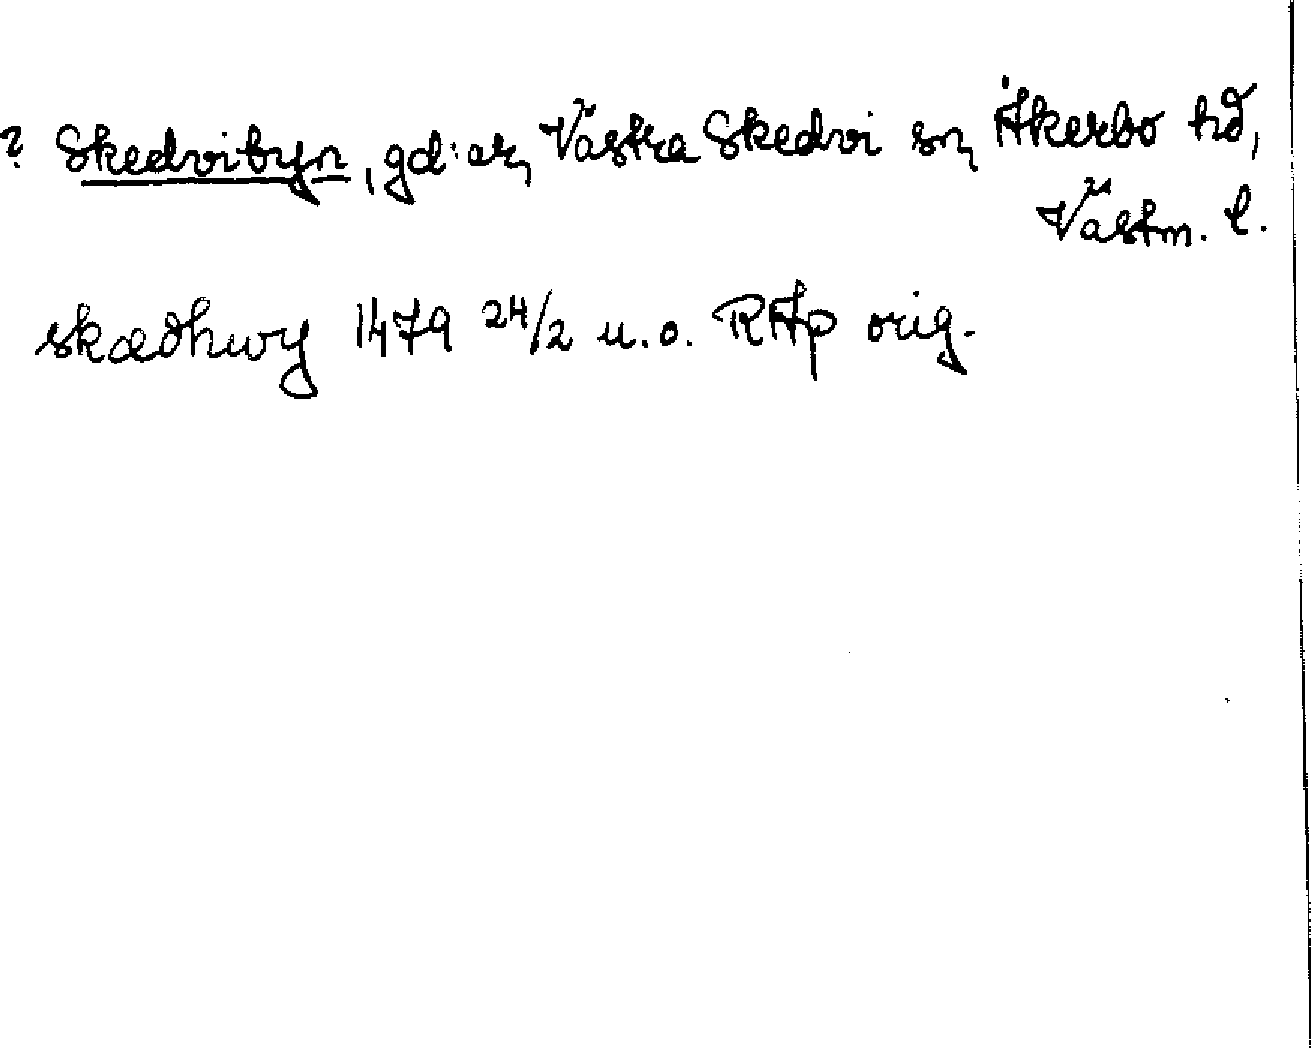 ? Skedvibyn, gd:ar, Västra Skedvi sn, Åkerbo hd,
Västm. l.
skædhwy 1479 24/2 u.o. RAp orig.